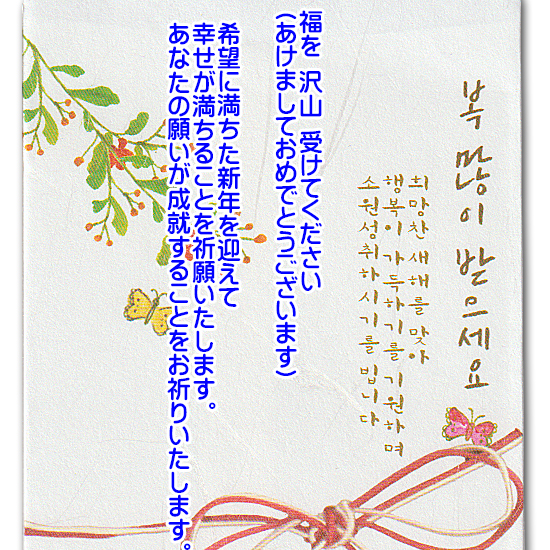 복 많이 받으세요
희망찬 새해를 맞아
행복이 가득하기를 기원하며
소원성취하시기를 빕니다
福を 沢山 受けてください
(あけましておめでとうございます)
希望に満ちた新年を迎えて
幸せが満ちることを祈願いたします。
あなたの願いが成就することをお祈りいたします。